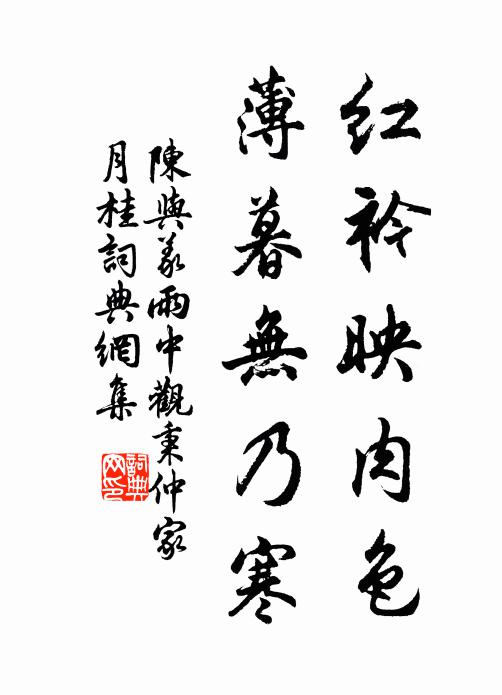 红衿映肉色
薄暮無乃寒
陳與義雨中觀秉仲家
月桂詞典網集
詞典
网印